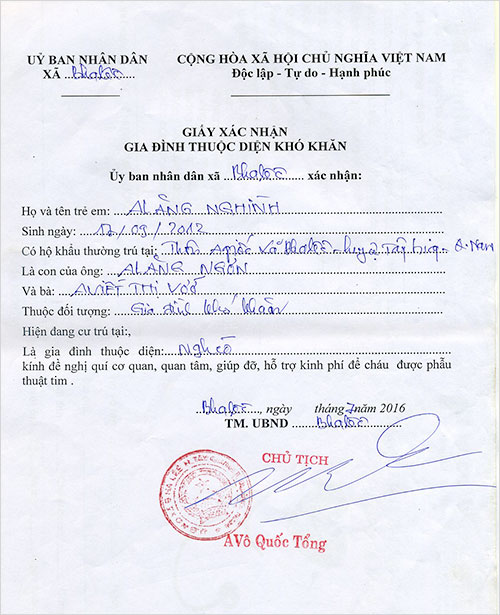 UỶ BAN NHÂN DÂN
CỘNG HÒA XÃ HỘI CHỦ NGHĨA VIỆT NAM
XÃ ..Bhalêê..
Độc lập - Tự do - Hạnh phúc
GIẤY XÁC NHẬN
GIA ĐÌNH THUỘC DIỆN KHÓ KHĂN
Ủy ban nhân dân xã ..Bhalêê.. xác nhận:
Họ và tên trẻ em: ALĂNG NGHÌNH
Sinh ngày: /09/2012
Có hộ khẩu thường trú tại: Thôn xã Bhalêê - huyện Tây Giang - Q. Nam
Là con của ông: ALĂNG NGÓN
Và bà: THỊ
Thuộc đối tượng: Gia đình khó khăn
Hiện đang cư trú tại:,
Là gia đình thuộc diện: Nghèo
kính đề nghị quí cơ quan, quan tâm, giúp đỡ, hỗ trợ kinh phí để cháu được phẫu
thuật tim .
Bhalêê, ngày tháng 7 năm 2016
TM. UBND Bhalêê
CHỦ TỊCH
AVô Quốc Tổng